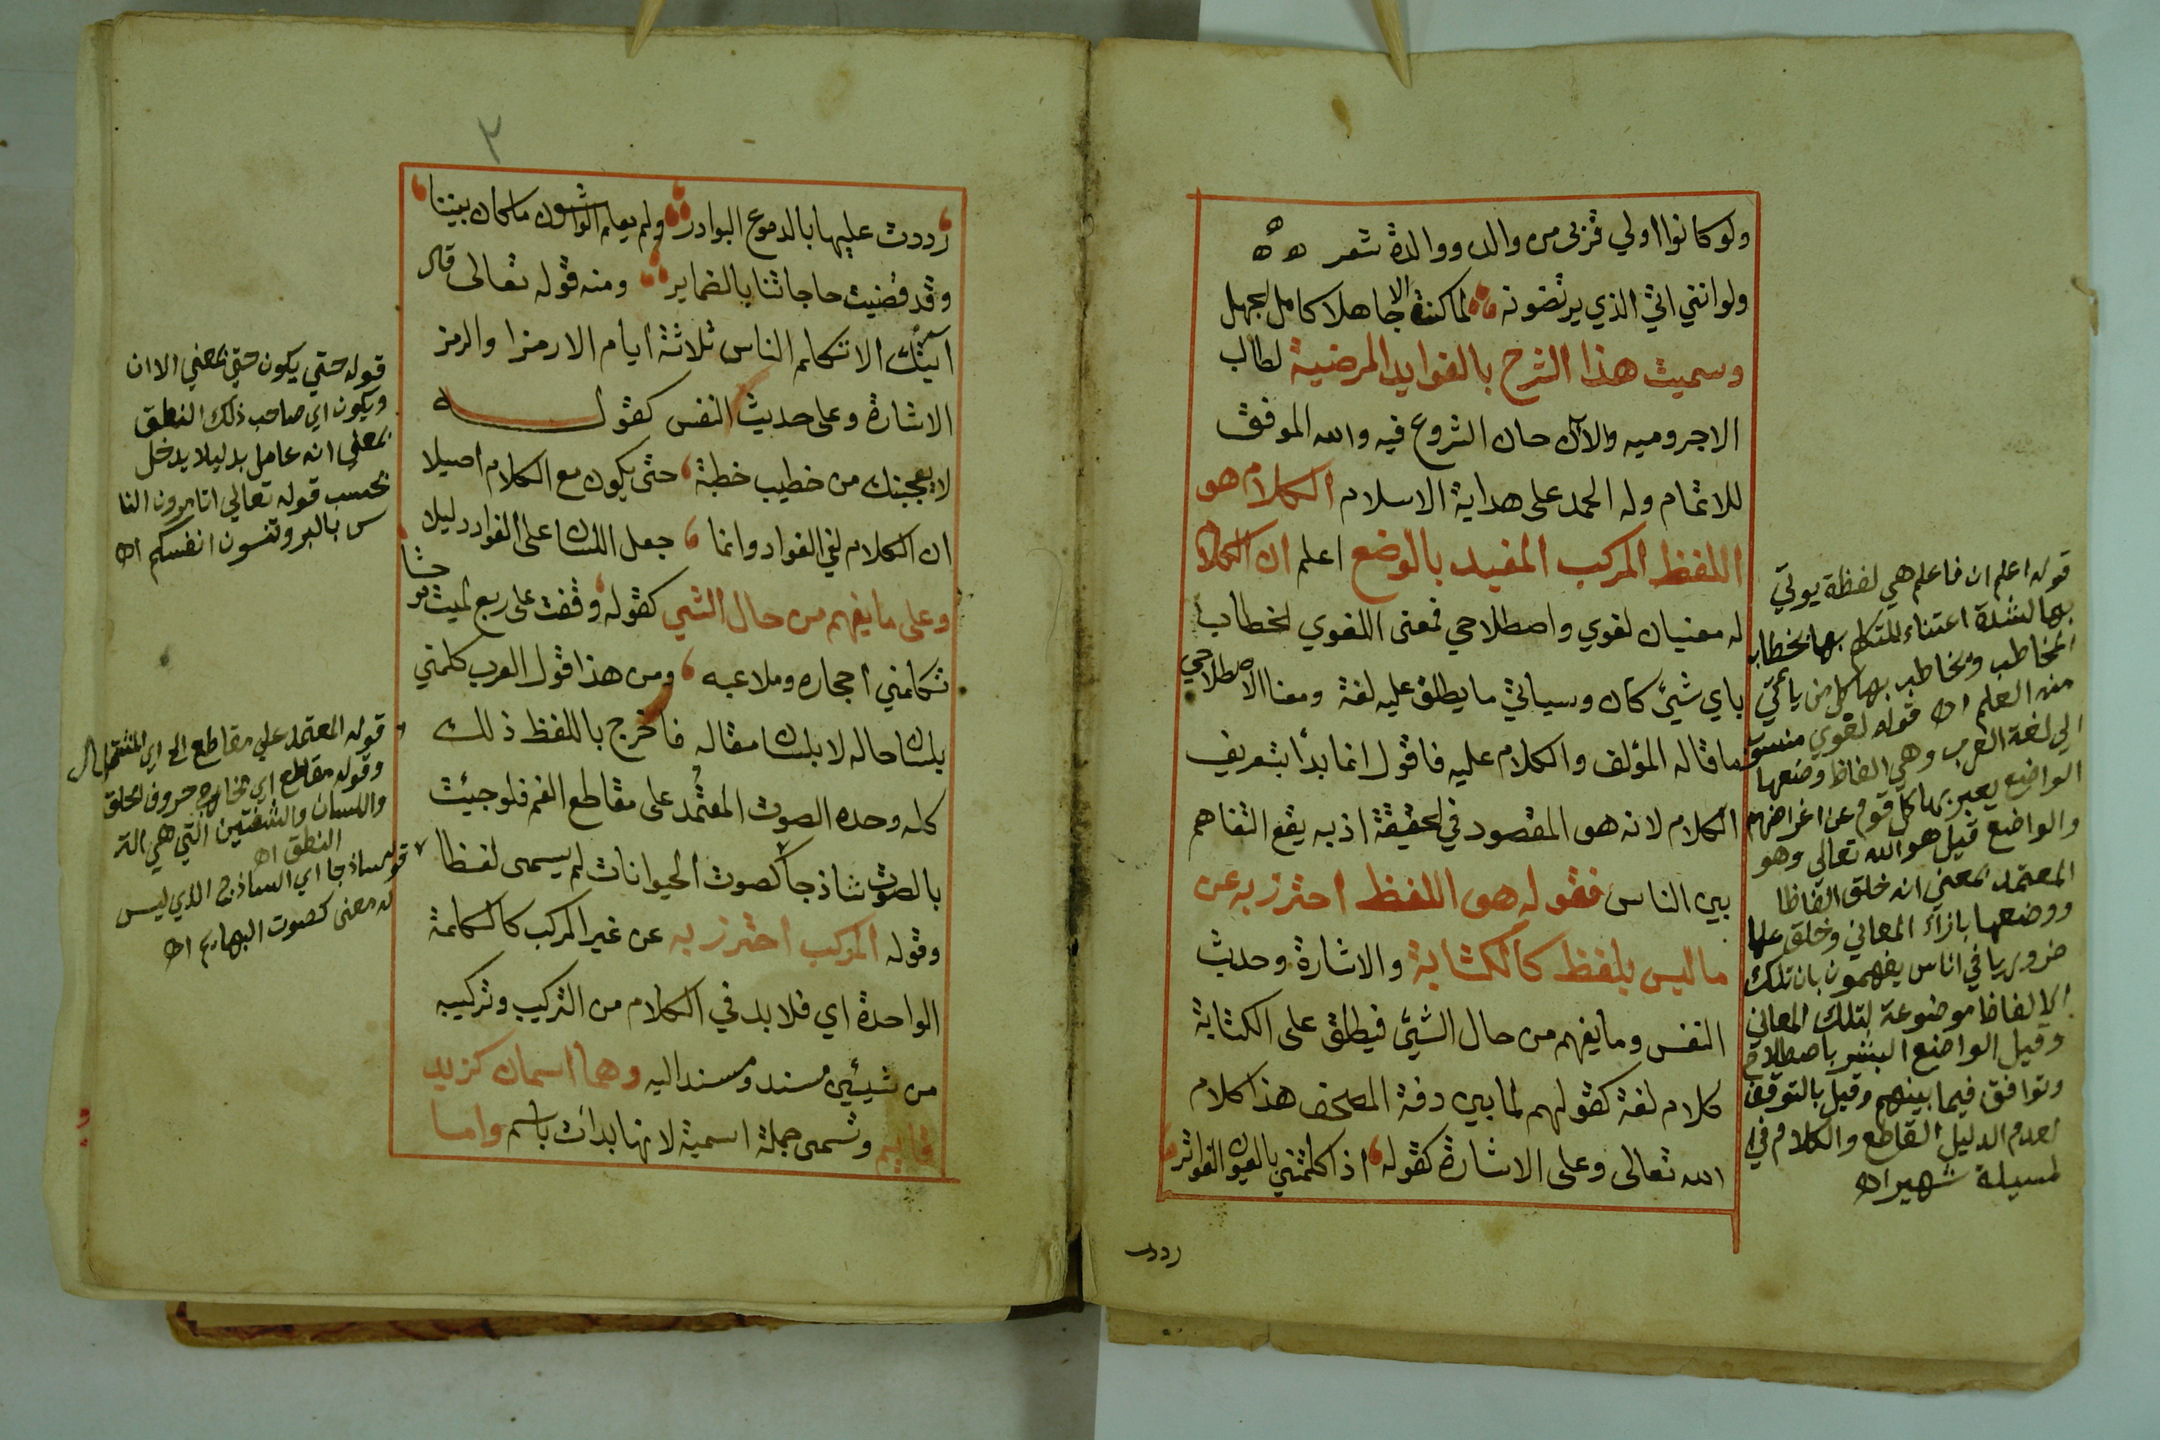 ولو كانوا اولي قربى من والد ووالدة شعر ه ه ه
ولوانني اني الذي يرتضونه لما كنت الا جاهلا كامل الجهل
وسميت هذا الشرح بالفوايد المرضية لطالب
الاجروميه والان حان الشروع فيه والله الموفق
للاتمام وله الحمد على هداية الاسلام الكلام هو
اللفظ المركب المفيد بالوضع اعلم ان الكلام
له معنيان لغوي واصطلاحي فمعنى اللغوي الخطاب
باي شيئ كان وسياتي ما يطلق عليه لغة ومعنا الاصطلاحي
ما قاله المؤلف والكلام عليه فاقول انما بدأ بتعريف
الكلام لانه هو المقصود في الحقيقة اذ به يقع التفاهم
بين الناس فقوله هو اللفظ احترز به عن
ما ليس بلفظ كالكتابة والاشارة وحديث
النفس وما يفهم من حال الشيئ فيطلق على الكتابة
كلام لغة كقولهم لما بين دفة المصحف هذا كلام
الله تعالى وعلى الاشارة كقوله اذا كلمتني بالعيون الفواتر
رددت
قوله اعلم ان فاعلم هي لفظة يوتي
بها لشدة اعتناء المتكلم بها بخطاب
المخاطب ويخاطب بها كل من يأتي
منه العلم اه قوله لغوي منسوب
الي لغة العرب وهي الفاظ وضعها
الواضع يعبر بها كل قوم عن اغراضهم
والواضع قيل هو الله تعالى وهو
المعتمد بمعني انه خلق الفاظا
ووضعها بازاء المعاني وخلق علما
ضروريا في اناس يفهمون بان تلك
الالفاظ موضوعة لتلك المعاني
وقيل الواضع البشر باصطلاح
وتوافق فيما بينهم وقيل بالتوقف
لعدم الدليل القاطع والكلام في
لمسيلة شهير اه
٢
رددت عليها بالدموع البوادر ولم يعلم الواشون ما كان بيننا
وقد قضيت حاجاتنا بالضماير ومنه قوله تعالى قال
آيتك الا تكلم الناس ثلاثة ايام الا رمزا والرمز
الاشارة وعلى حديث النفس كقوله
لا يعجبنك من خطيب خطبة حتى يكون مع الكلام اصيلا
ان الكلام لفي الفواد وانما جعل اللسان على الفواد دليلا
وعلى ما يفهم من حال الشي كقوله وقفت على ربع لميت
تكلمني احجاره وملاعبه ومن هذا قول العرب كلمني
بلسان حاله لا بلسان مقاله فاخرج باللفظ ذلك
كله وحده الصوت المعتمد على مقاطع الفم فلو جيئت
بالصوت شاذجا كصوت الحيوانات لم يسمى لفظا
وقوله المركب احترز به عن غير المركب كالكلمة
الواحدة اي فلا بد في الكلام من التركيب وتركيبه
من شيئين مسند ومسند اليه وهما اسمان كزيد
قايم وتسمى جملة اسمية لانها بدات باسم واما
قوله حتي يكون حتي بمعني الا ان
ويكون اي صاحب ذلك النطق
بمعني انه عامل به ليلا يدخل
بحسب قوله تعالي اتامرون النا
س بالبر وتنسون انفسكم اه
قوله المعتمد علي مقاطع الخ اي المشتمل
وقوله مقاطع اي مخارج حروف الحلق
واللسان والشفتين التي هي الة
النطق اه
قوله ساذجا اي الساذج الذي ليس
له معنى كصوت البهايم اه